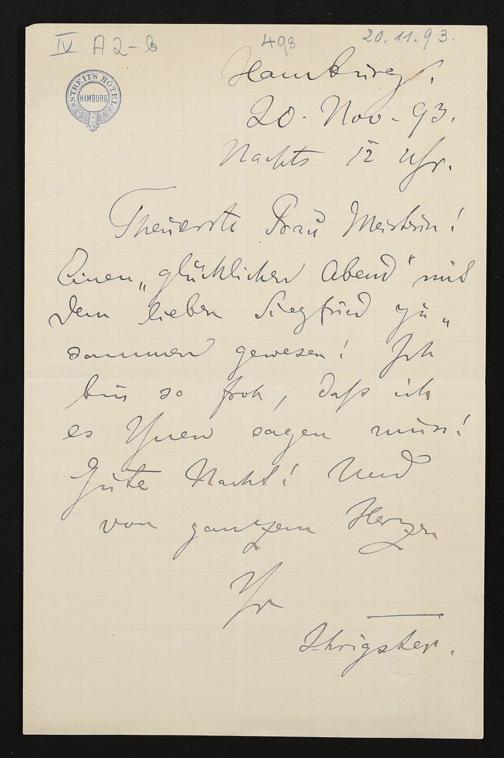 IV A 2-b
498
20.11.93.
STREITS HOTEL
HAMBURG
Hamburg.
20. Nov. 93.
Nachts 12 Uhr.
Theuerste Frau Meisterin!
Einen „glücklichen Abend“ mit
dem lieben Siegfried zu„
sammen gewesen! Ich
bin so froh, daß ich
es Ihnen sagen muss!
Gute Nacht! Und
von ganzem Herzen
Ihr
Ihrigster.